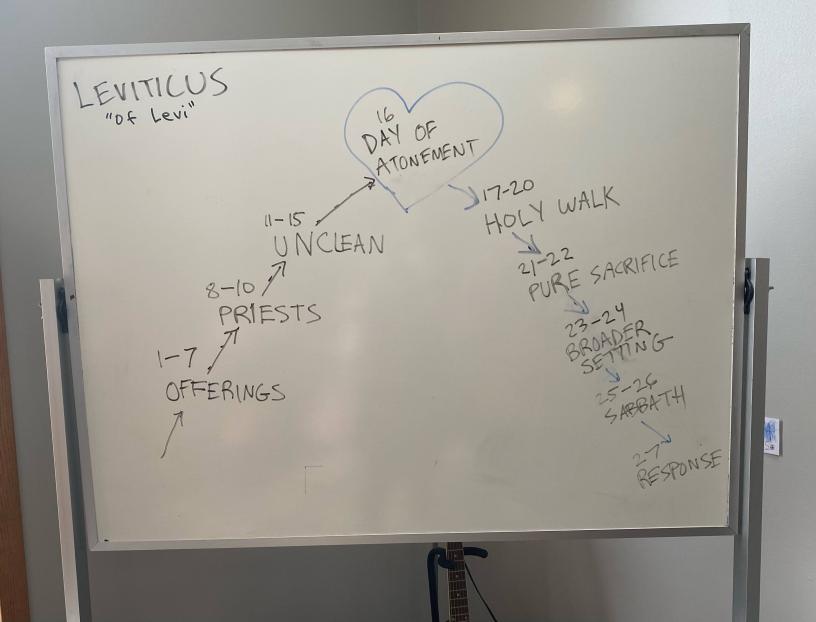 LEVITICUS
"of Levi"
16
DAY OF
ATONEMENT
11-15
UNCLEAN
8-10
PRIESTS
1-7
OFFERINGS
17-20
HOLY WALK
21-22
PURE SACRIFICE
23-24
BROADER
SETTING
25-26
SABBATH
2-7
RESPONSE